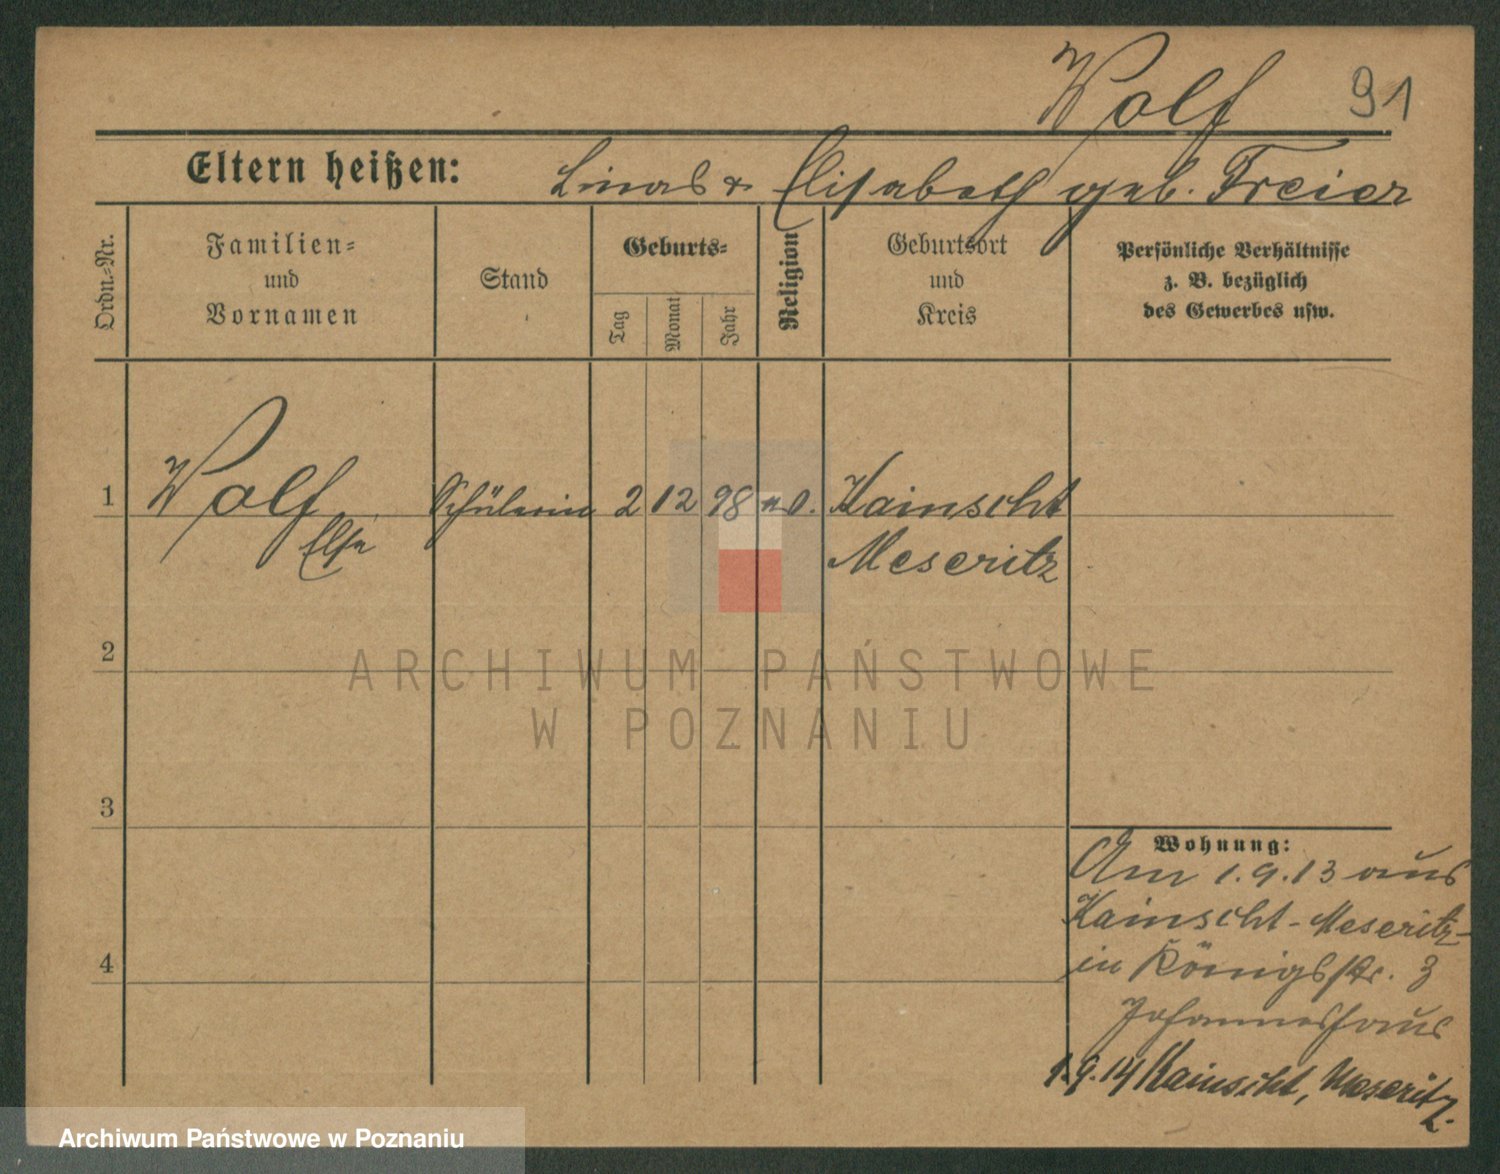 Wolf 91
Eltern heißen: & Elisabeth geb. Freier
Ordn.-Nr.
Familien-
und
Vornamen
Stand
Geburts-
Tag
Monat
Jahr
Religion
Geburtsort
und
Kreis
Persönliche Verhältnisse
z. B. bezüglich
des Gewerbes usw.
1 Wolf Schülerin 2 12 98 Kainscht
Else Meseritz
2
ARCHIWUM PAŃSTWOWE
W POZNANIU
3
Wohnung:
Am 1.9.13 aus
Kainscht-Meseritz-
4 in Königsstr. 3
Johanneshaus
1.9.14 Kainscht, Meseritz.
Archiwum Państwowe w Poznaniu